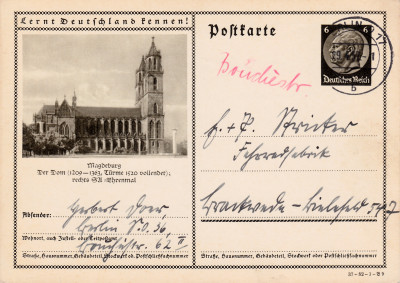 Lernt Deutschland kennen!
Magdeburg
Der Dom (1209—1363, Türme 1520 vollendet);
rechts SA.-Ehrenmal
Absender: Herbert
Berlin S.O. 36,
Wohnort, auch Zustell- oder Leitpostamt
62 II
Straße, Hausnummer, Gebäudeteil, Stockwerk od. Postschließfachnummer
Postkarte
6 6
Deutsches Reich
b
E. + P. Stricker
Fahrradfabrik
Brackwede-Bielefeld
Straße, Hausnummer, Gebäudeteil, Stockwerk oder Postschließfachnummer